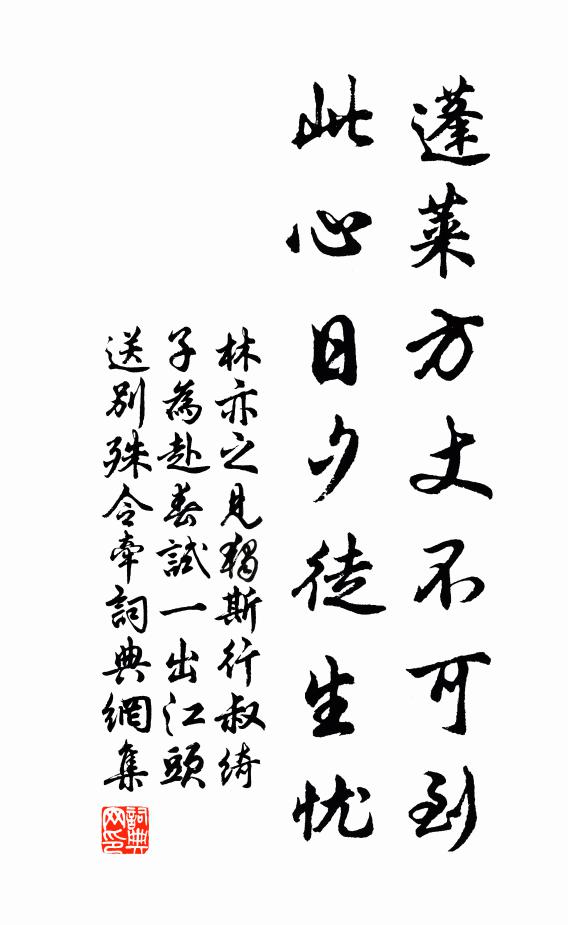 蓬莱方丈不可到
此心日夕徒生忧
林亦之見獨斯行叔綺
子為赴春試一出江頭
送別殊令牽詞典網集
詞典
网印